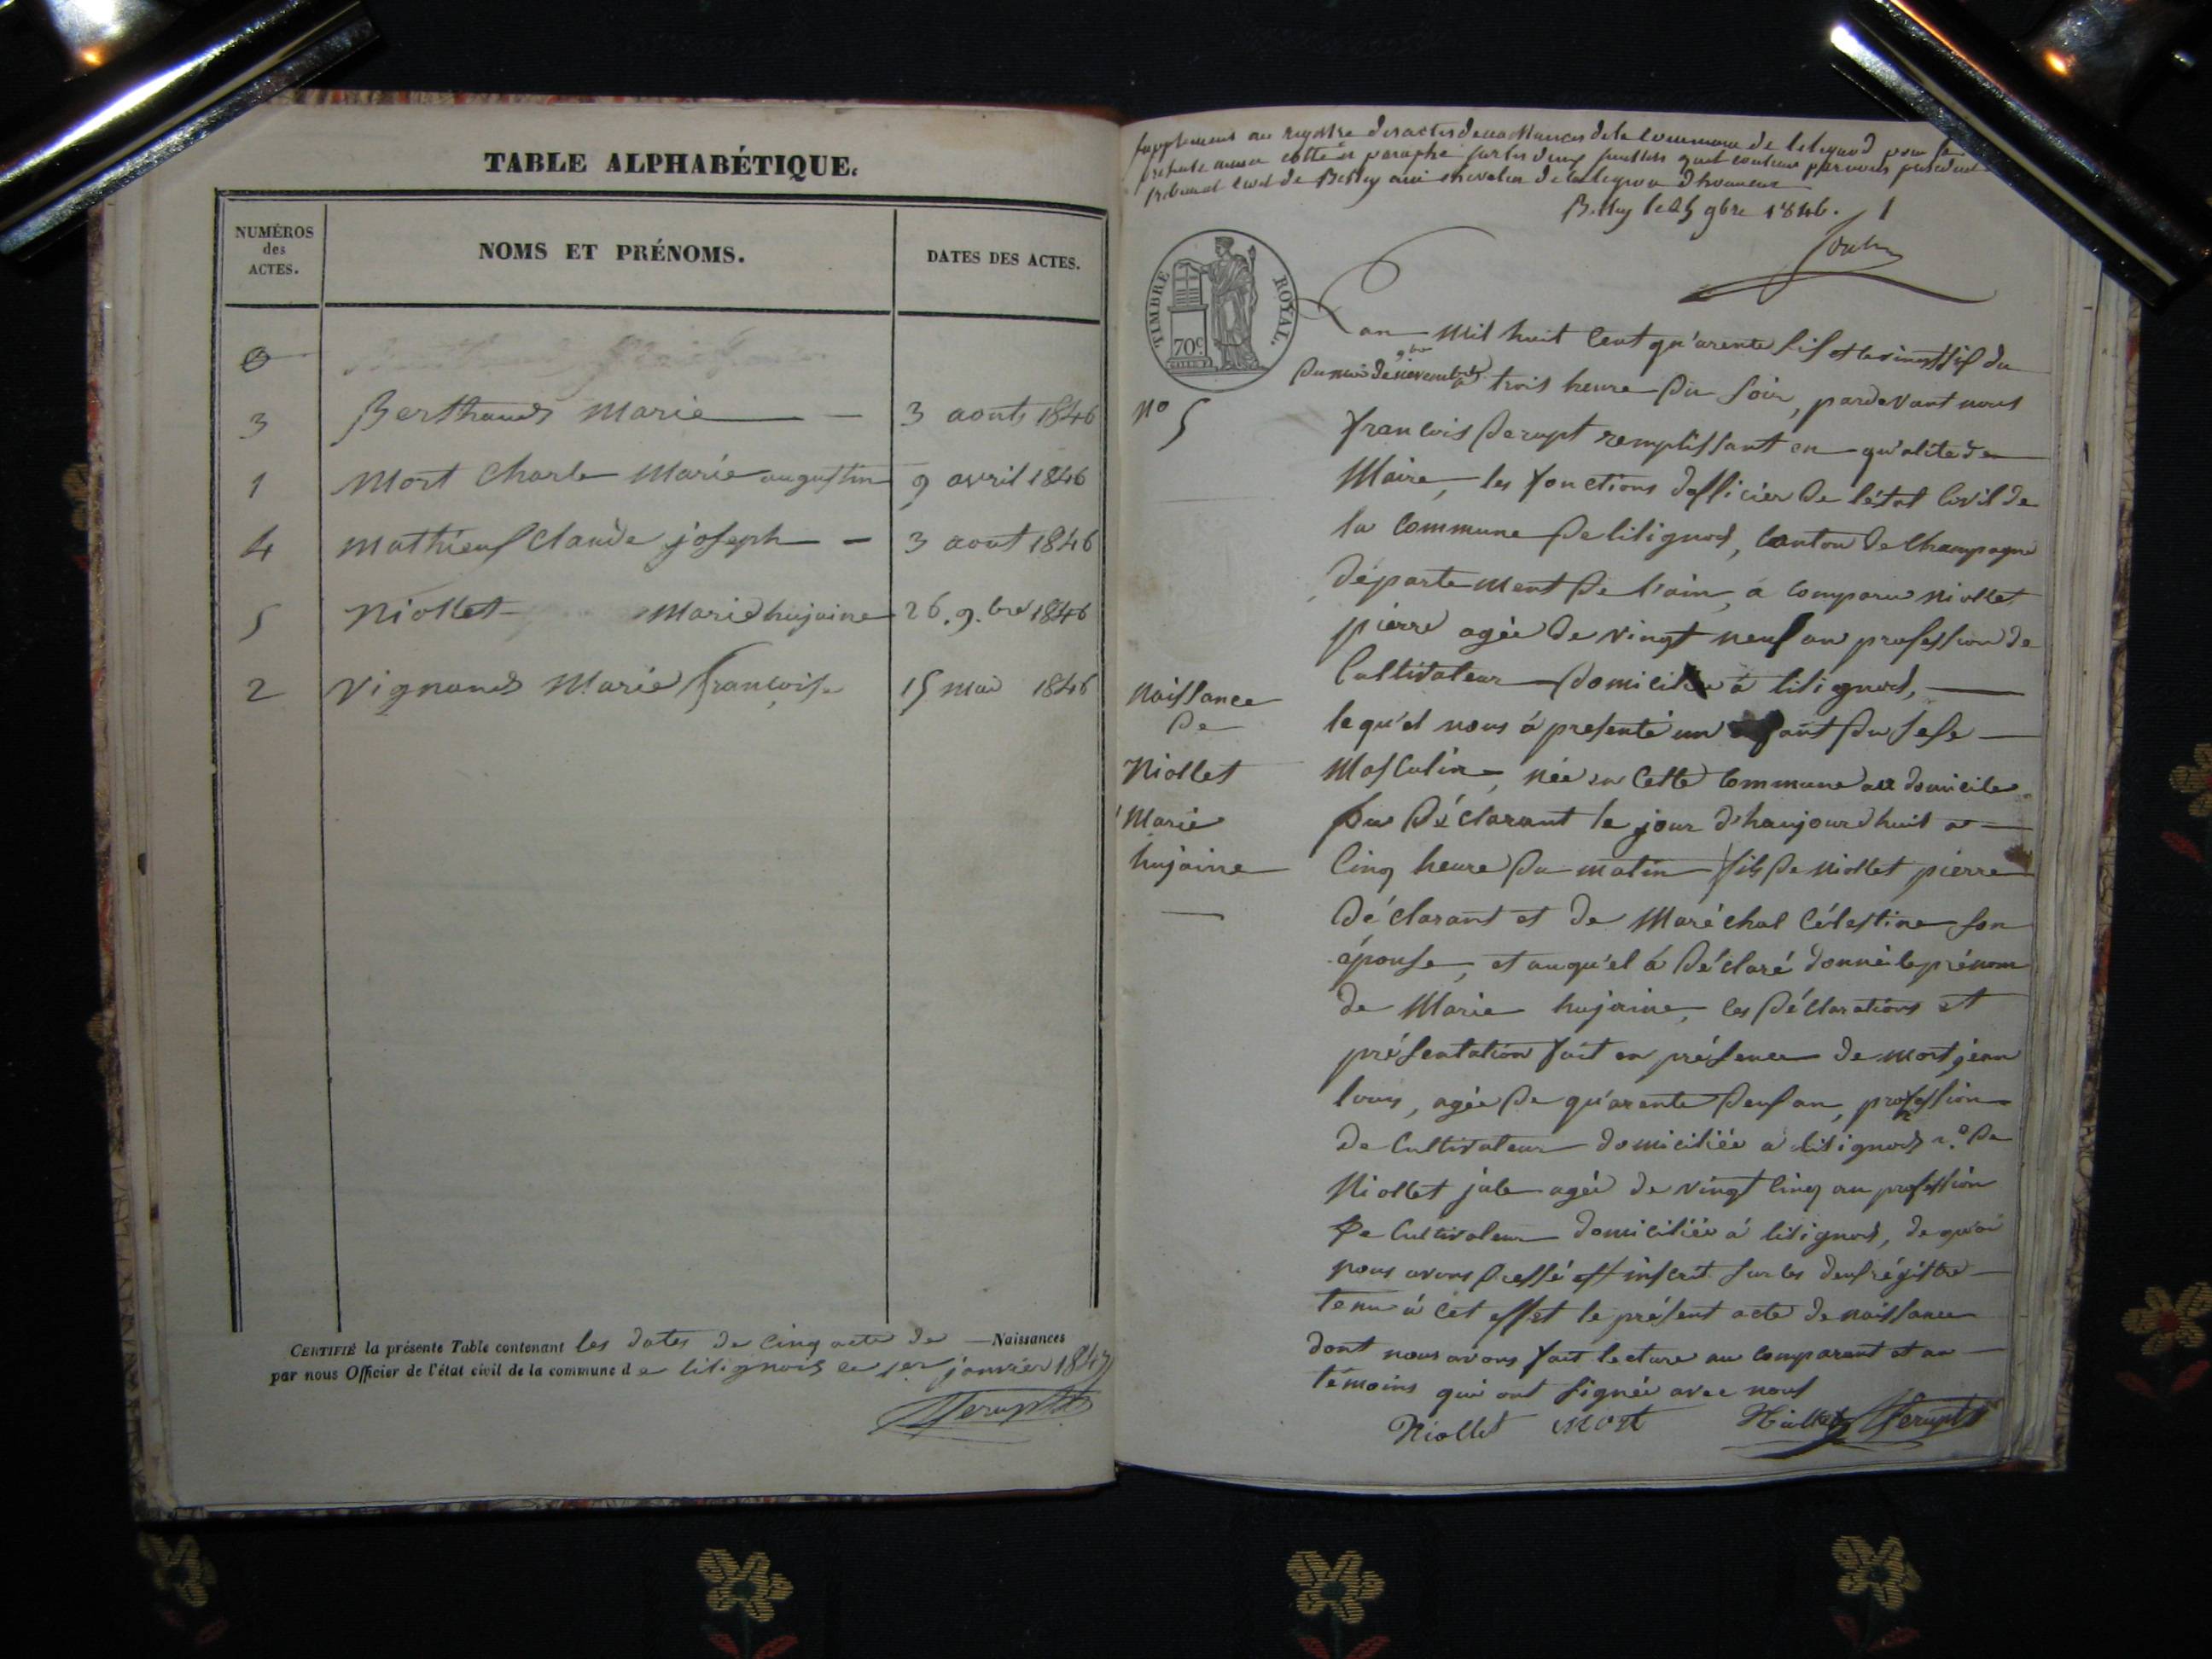 TABLE ALPHABÉTIQUE.
NUMÉROS des ACTES.
NOMS ET PRÉNOMS.
DATES DES ACTES.
3 Berthaud Marie 3 aout 1846
1 Mort Charle Marie augustin 9 avril 1846
4 mathieux Claude joseph 3 aout 1846
5 Niollet Marie hujaine 26. 9.bre 1846
2 Vignand Marie françoise 15 mai 1846
CERTIFIÉ la présente Table contenant les dates de cinq acte de Naissances
par nous Officier de l'état civil de la commune de lilignod ce 1er janvier 1847
Derupt
Supplement au registre des actes de naissances de la Commune de lilignod pour la
presente annee cotté et paraphé sur les deux feuillets par nous president
tribunal civil de Belley chevalier de la legion d'honneur
Belley le 25 9bre 1846. 1
TIMBRE ROYAL.
70c
L'an Mil huit Cent qu'arente six et le vingt six du
du mois de novembre à trois heure du soir, pardevant nous
N° 5
françois Derupt remplissant en qu'alité de
Maire, les fonctions dofficier de l'état Civil de
la Commune de lilignod, Canton de Champagne
département de l'ain, à Comparu Niollet
pierre agée de vingt neuf an profession de
Cultivateur domicilié à lilignod,
Naissance
de
Niollet
Marie
hujaine
lequ'el nous à présenté un enfant du sexe
Masculin, née en Cette Commune au domicile
du Déclarant le jour d'haujourdhuit a
Cinq heure du matin fils de Niollet pierre
déclarant et de Maréchal Célestine son
épouse, et auqu'el à déclaré donné le prénom
de Marie hujaine, les déclarations et
présentation fait en présence de Mort jean
louis, agée de qu'arente deux an, profession
de Cultivateur domiciliée à lilignod 2.° de
Niollet jule agée de vingt cinq an profession
de Cultivateur domiciliée à lilignod, de quoi
nous avons dressé et inscrit sur les deux régistre
tenu à Cet effet le présent acte de naissance
dont nous avons fait lecture au Comparant et au
témoins qui ont signée avec nous
Niollet Mort Niollet Derupt